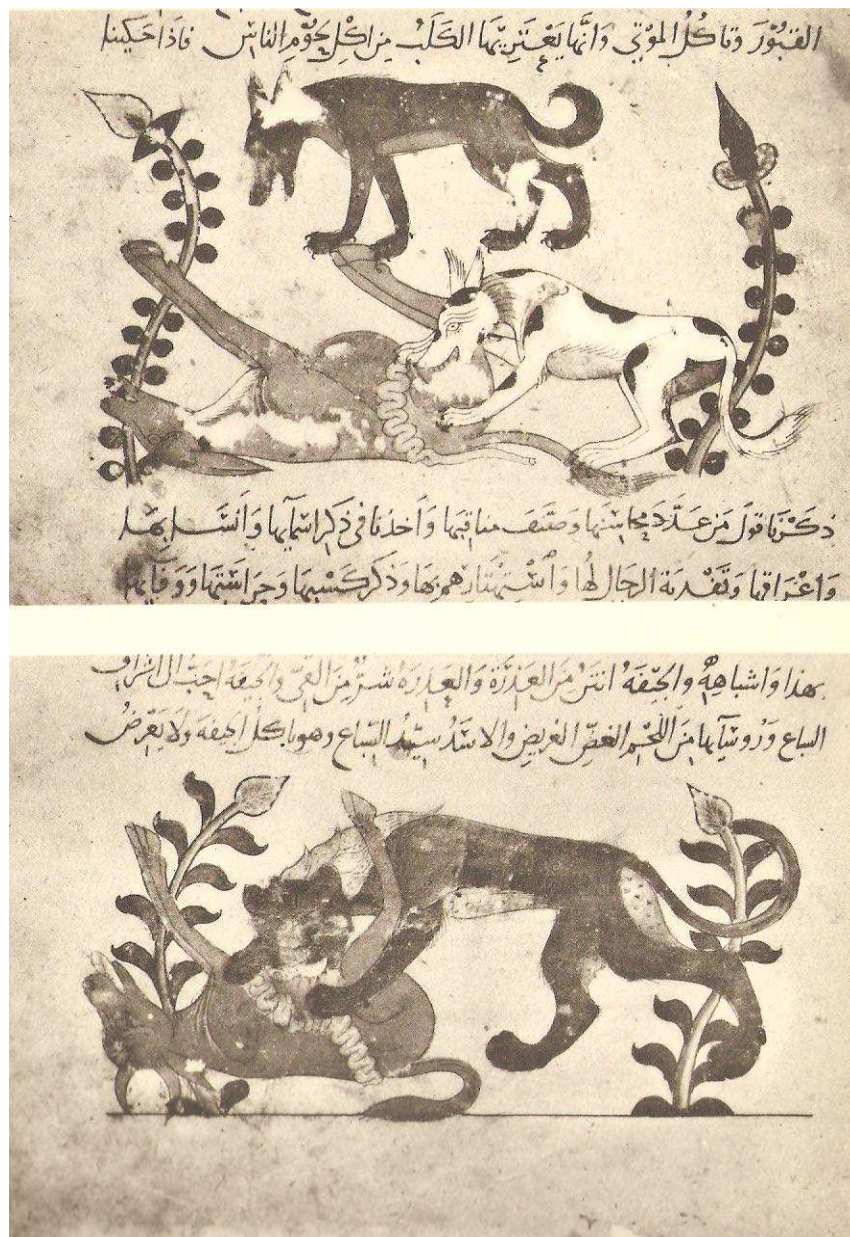 القبُوْرَ وتاكُلُ الموْتي وَانَّها يَعْتَرِيْهَا الكَلَبُ مِن اكْلِ لحُوْمِ الناسِ فاذا حَكينا
ذكَرْنا قولَ مَن عَدَّدَ محاسِنها وصَنَّفَ مناقبها وَاَخذنا في ذكرِ اسْمآيها وَاَنسَابِها
وَاعْرَاقها وَتَفْدِيَة الرجَالِ لهُا وَاسْتِهْتَارهم بهَا وَذكر كَسْبِهَا وَحِرَاسَتِهَا وَوفَآيها
بهذا وَاشباهِهِ والجيْفَهُ انتَنُ مِنَ العَذِرَة وَالعَذِرَةُ شَرٌ مِنَ القَىِ وَالجيفَهُ احَبُّ الى اشرَافِ
السباع وَرُوسَآيها مِنَ اللَّحْمِ الغَضِّ الغريْضِ وَالاسَدُ سَيِّدُ السِّبَاع وهو ياكل الجيفَه وَلا يَعْرِضُ